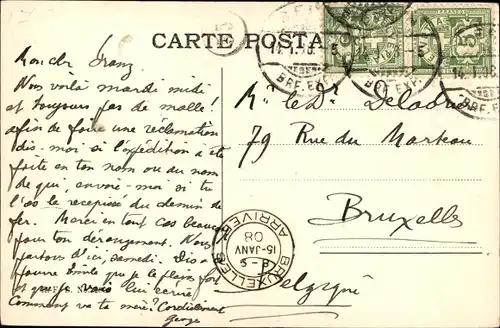 CARTE POSTA
Mon cher Franz
Nous voilà mardi midi
et toujours pas de malle!
afin de faire une réclamation
dis-moi si l'expédition a été
faite en ton nom ou au nom
de qui, envoie-moi si tu
l'as le recepissé du chemin de
fer. Merci en tout cas beaucoup
pour ton dérangement. Nous
partons d'ici, samedi. Dis à
que je le plains fort
et que je vais lui écrire
Comment va ta mère? Cordialement
Georges
79 Rue du Marteau
Bruxelles
Belgique
BRUXELLES
ARRIVÉE
8-9
15-JANV
08
FRANCO
5
BRF. EXP.